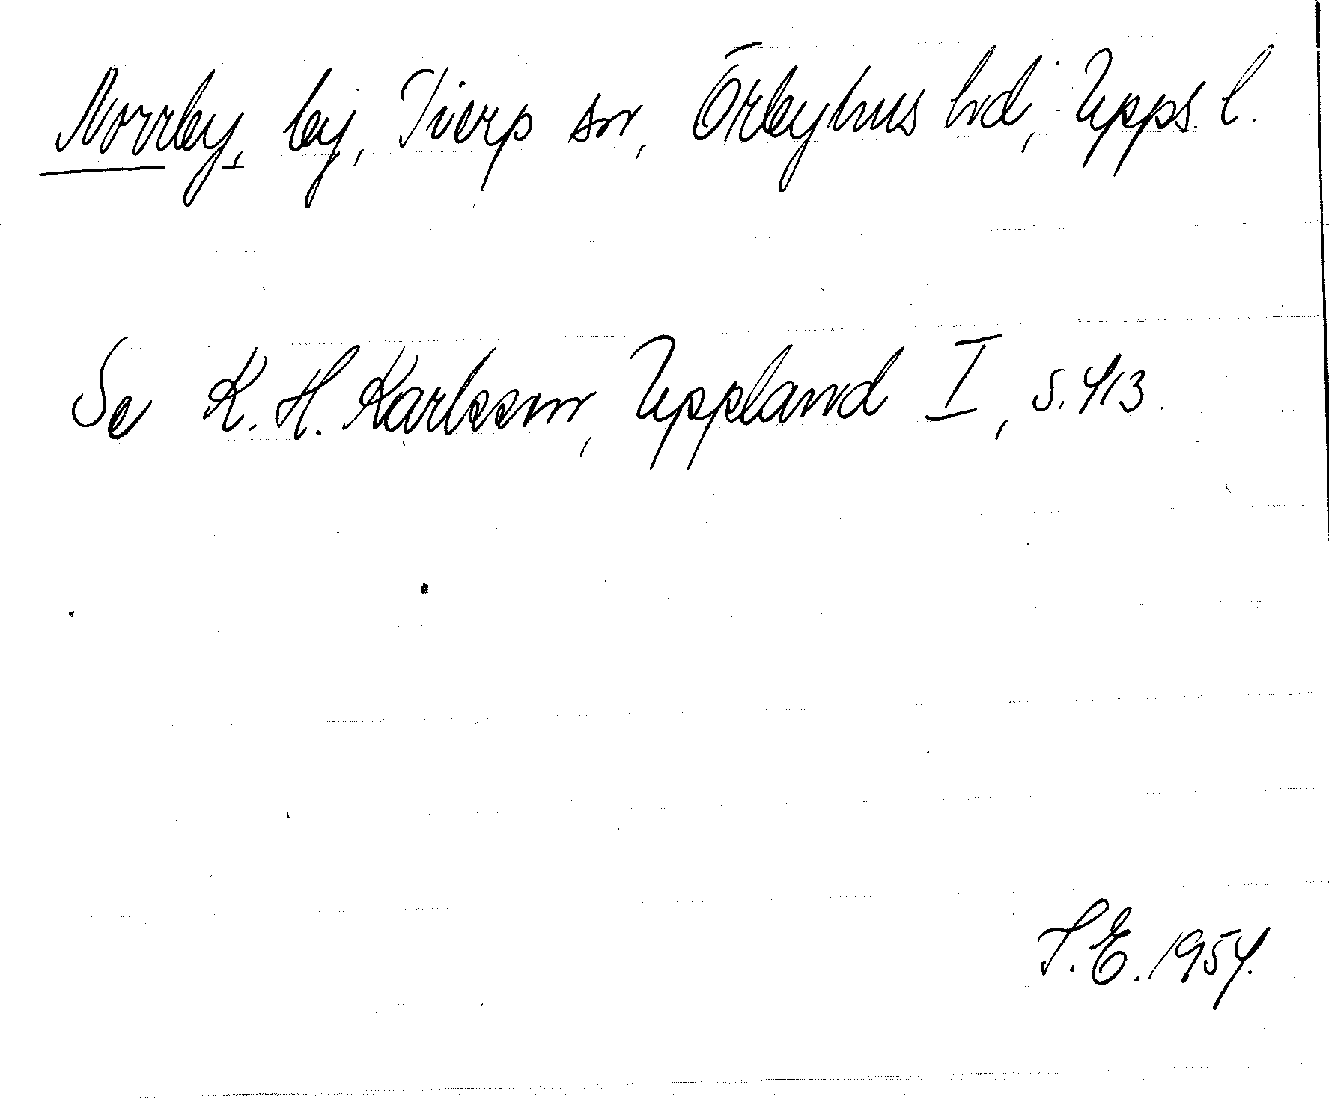 Norrby, by, Tierp sn, Örbyhus hd, Upps. l.
Se K. H. Karlsson, Uppland I, s. 413.
S. E. 1954.